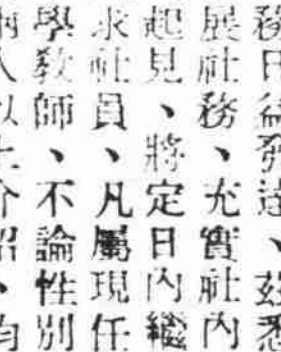 務日益發達、茲悉
展社務、充實社內
起見、將定日內繼
求社員、凡屬現任
學教師、不論性別
兩人以上介紹、均